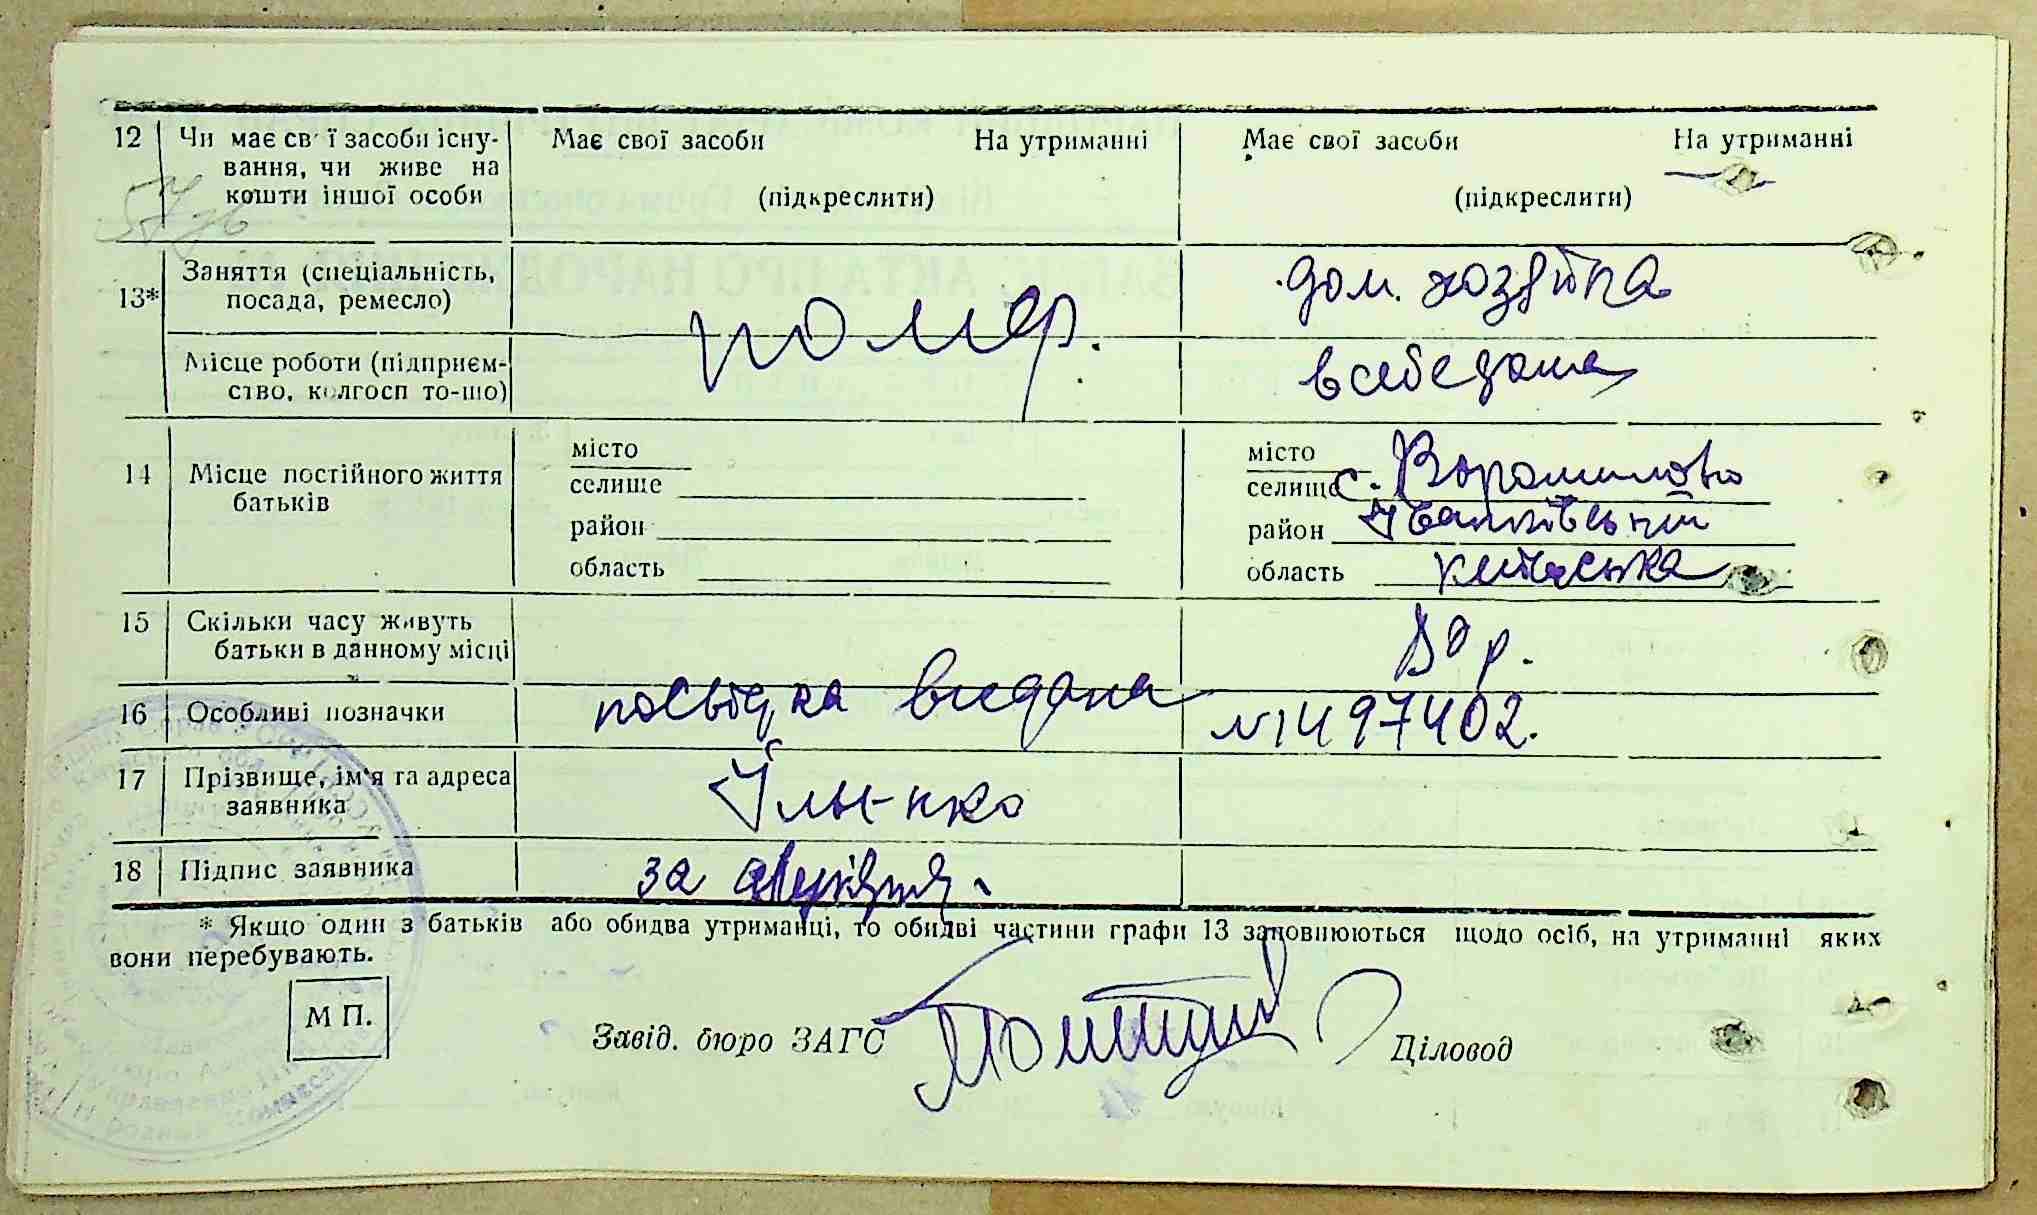 12 Чи має св ї засоби існу- Має свої засоби На утриманні Має свої засоби На утриманні
вання, чи живе на
кошти іншої особи (підкреслити) (підкреслити)
13* Заняття (спеціальність, дом. хозяйка
посада, ремесло) помер.
Місце роботи (підприєм- в себе дома
ство, колгосп то-що)
14 Місце постійного життя місто місто
батьків селище селище с.
район район Іванківський
область область київська
15 Скільки часу живуть р.
батьки в данному місці
16 Особливі позначки посвідка видана №1497402.
17 Прізвище, ім'я та адреса Ільєнко
заявника
18 Підпис заявника за
* Якщо один з батьків або обидва утриманці, то обидві частини графи 13 заповнюються щодо осіб, на утриманні яких
вони перебувають.
М П.
Завід. бюро ЗАГС Діловод